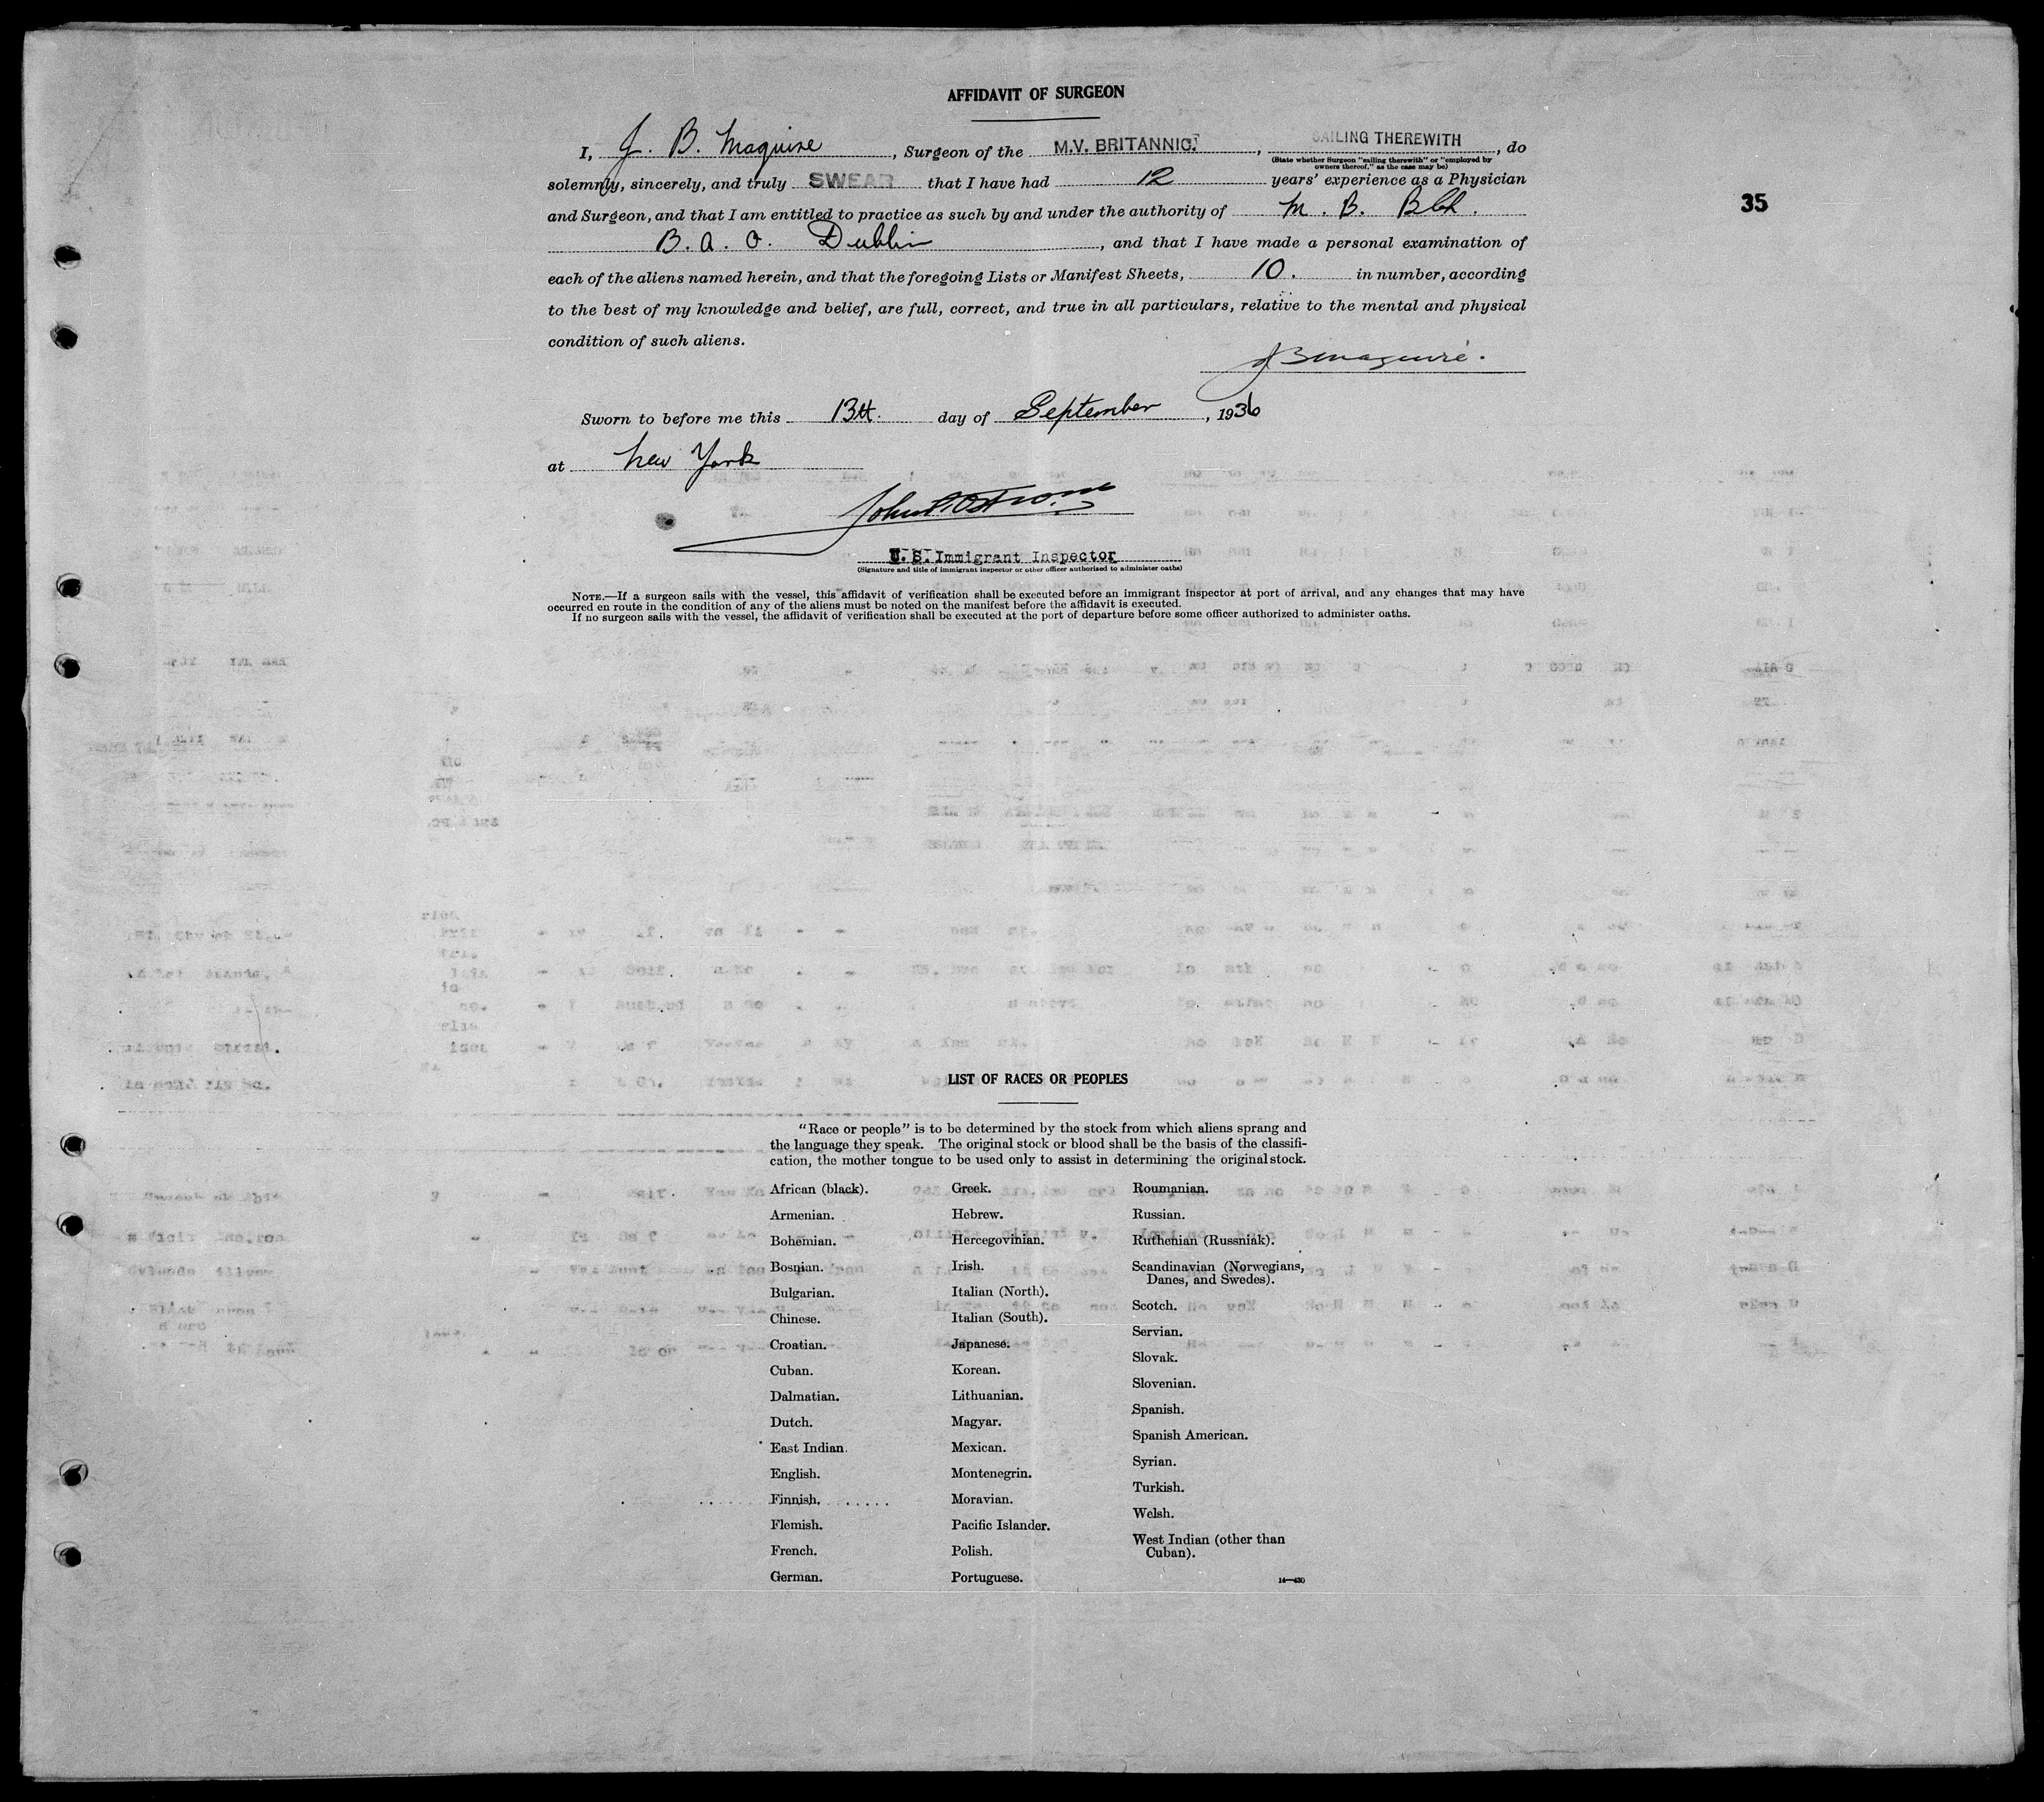 AFFIDAVIT OF SURGEON
I, J. B. Maguire, Surgeon of the M.V. BRITANNIC, SAILING THEREWITH, do
(State whether Surgeon "sailing therewith" or "employed by
owners thereof," as the case may be)
solemnly, sincerely, and truly SWEAR that I have had 12 years' experience as a Physician
35
and Surgeon, and that I am entitled to practice as such by and under the authority of M. B. BCh.
B. A. O. Dublin, and that I have made a personal examination of
each of the aliens named herein, and that the foregoing Lists or Manifest Sheets, 10. in number, according
to the best of my knowledge and belief, are full, correct, and true in all particulars, relative to the mental and physical
condition of such aliens.
J B Maguire.
Sworn to before me this 13th. day of September, 1936
at New York
U. S. Immigrant Inspector
(Signature and title of immigrant inspector or other officer authorized to administer oaths)
NOTE.—If a surgeon sails with the vessel, this affidavit of verification shall be executed before an immigrant inspector at port of arrival, and any changes that may have
occurred en route in the condition of any of the aliens must be noted on the manifest before the affidavit is executed.
If no surgeon sails with the vessel, the affidavit of verification shall be executed at the port of departure before some officer authorized to administer oaths.
LIST OF RACES OR PEOPLES
"Race or people" is to be determined by the stock from which aliens sprang and
the language they speak. The original stock or blood shall be the basis of the classifi-
cation, the mother tongue to be used only to assist in determining the original stock.
African (black).
Armenian.
Bohemian.
Bosnian.
Bulgarian.
Chinese.
Croatian.
Cuban.
Dalmatian.
Dutch.
East Indian.
English.
Finnish.
Flemish.
French.
German.
Greek.
Hebrew.
Hercegovinian.
Irish.
Italian (North).
Italian (South).
Japanese.
Korean.
Lithuanian.
Magyar.
Mexican.
Montenegrin.
Moravian.
Pacific Islander.
Polish.
Portuguese.
Roumanian.
Russian.
Ruthenian (Russniak).
Scandinavian (Norwegians,
Danes, and Swedes).
Scotch.
Servian.
Slovak.
Slovenian.
Spanish.
Spanish American.
Syrian.
Turkish.
Welsh.
West Indian (other than
Cuban).
14—430